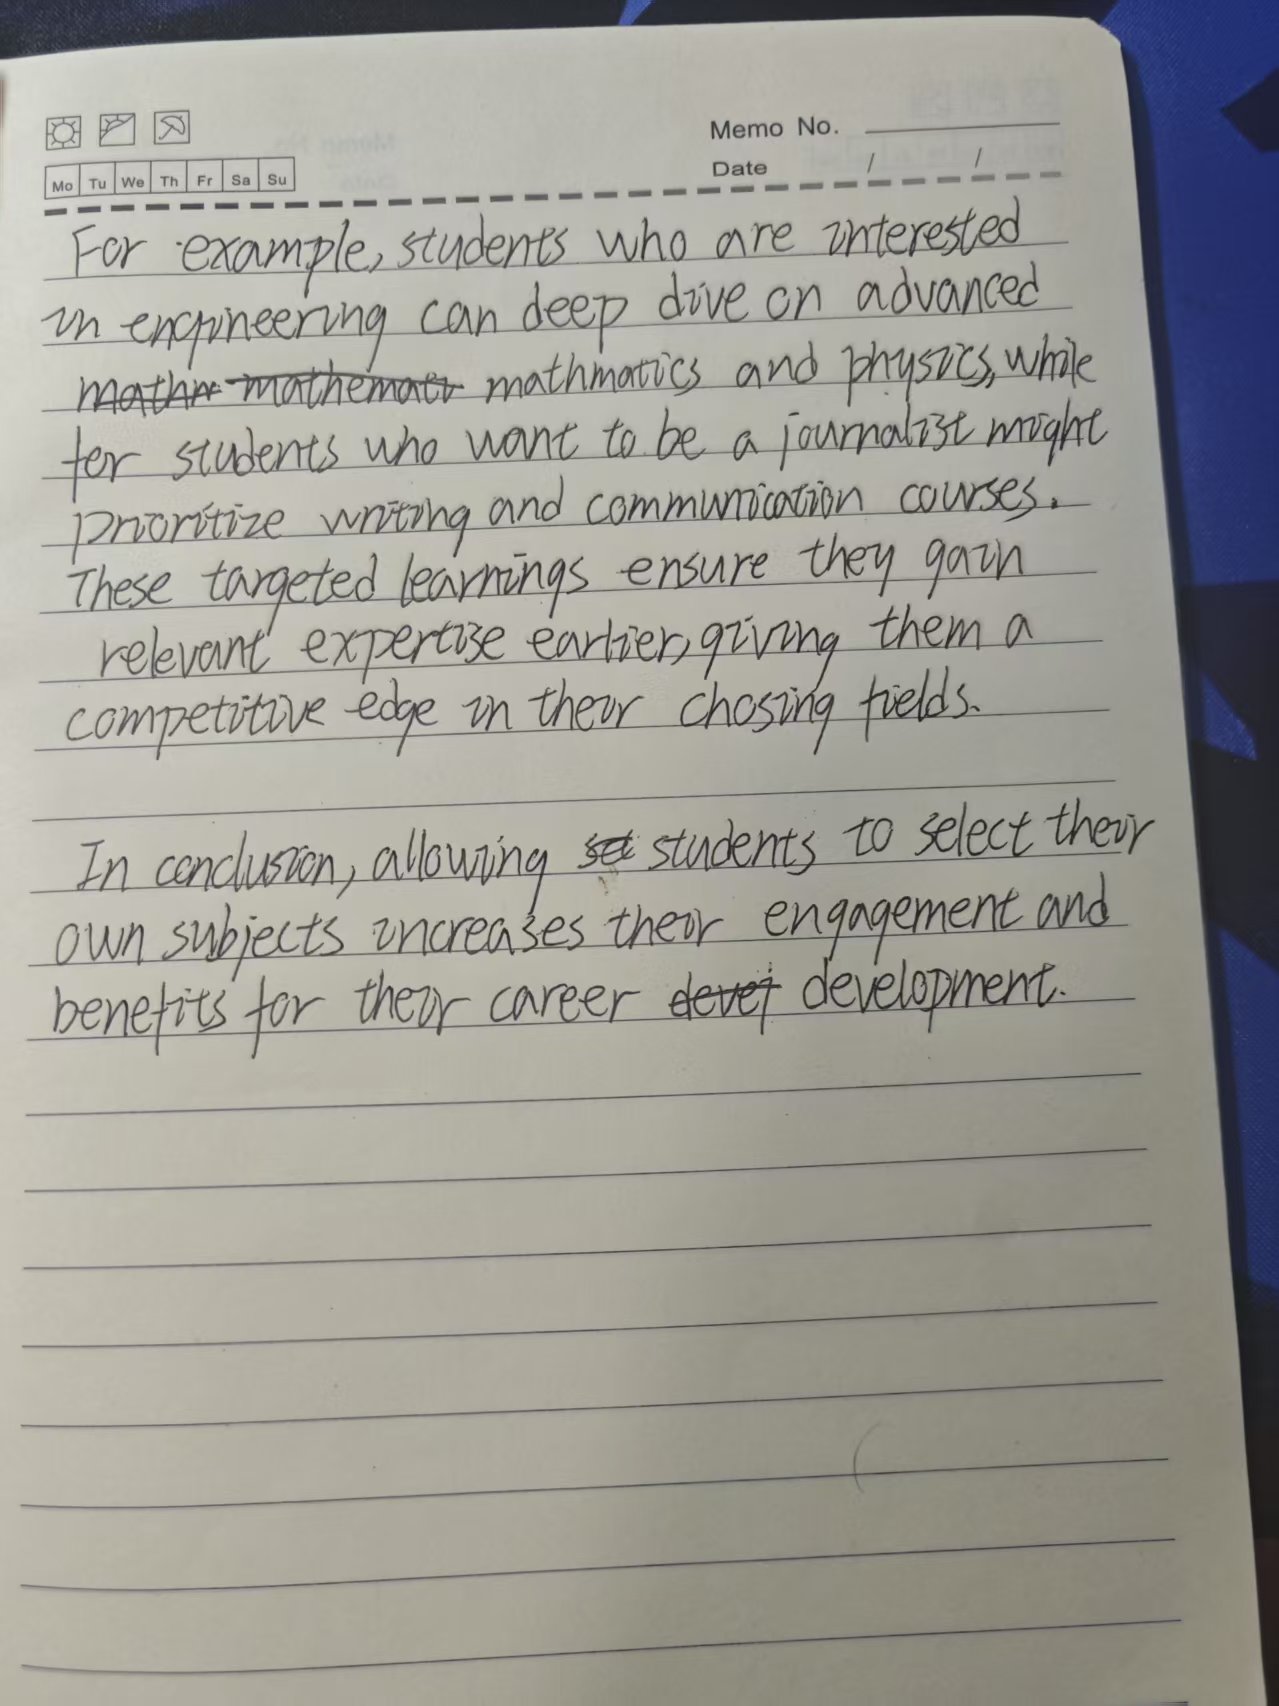 Memo No.
Mo Tu We Th Fr Sa Su
Date / /
For example, students who are interested
in engineering can deep dive on advanced
mathm mathemati mathmatics and physics, while
for students who want to be a journalist might
prioritize writing and communication courses.
These targeted learnings ensure they gain
relevant expertise earlier, giving them a
competitive edge in their chosing fields.
In conclusion, allowing set students to select their
own subjects increases their engagement and
benefits for their career devel development.